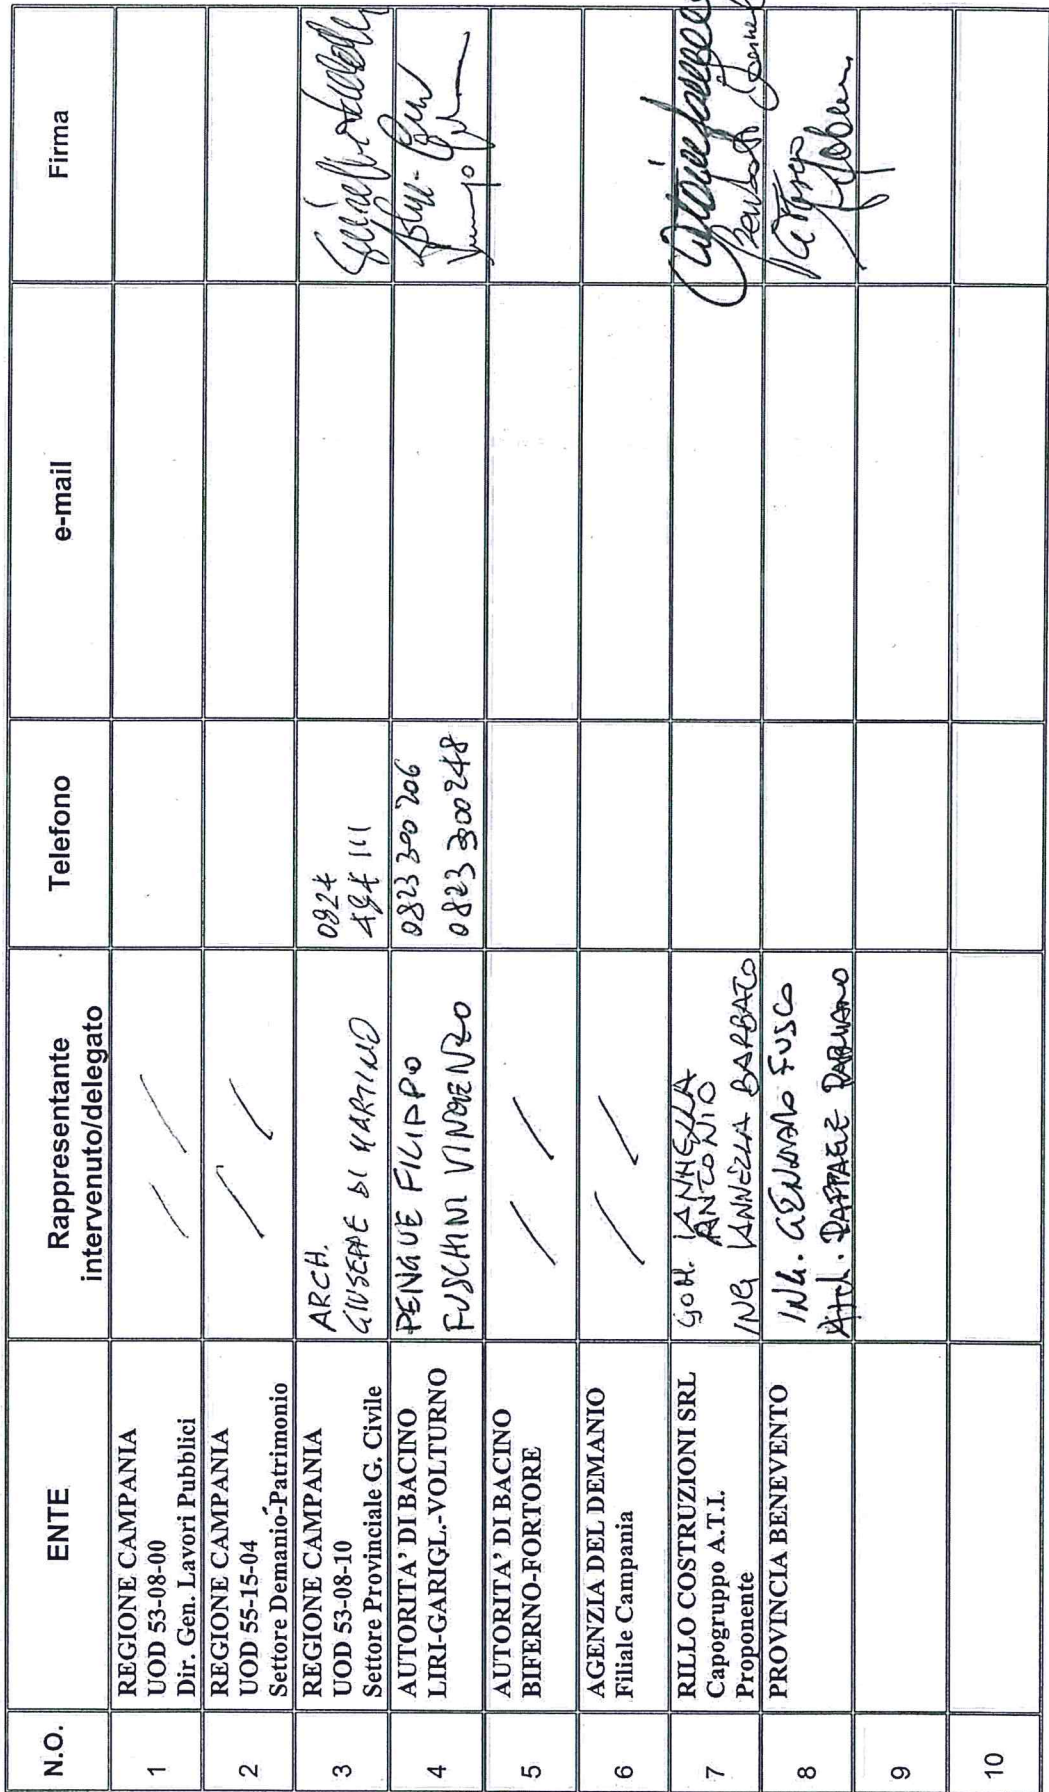 N.O. ENTE Rappresentante intervenuto/delegato Telefono e-mail Firma
1 REGIONE CAMPANIA
UOD 53-08-00
Dir. Gen. Lavori Pubblici
2 REGIONE CAMPANIA
UOD 55-15-04
Settore Demanio-Patrimonio
3 REGIONE CAMPANIA
UOD 53-08-10
Settore Provinciale G. Civile
ARCH.
GIUSEPPE DI MARTINO
0824
484 111
4 AUTORITA' DI BACINO
LIRI-GARIGL.-VOLTURNO
PENGUE FILIPPO
FUSCHINI VINCENZO
0823 300 206
0823 300 248
5 AUTORITA' DI BACINO
BIFERNO-FORTORE
6 AGENZIA DEL DEMANIO
Filiale Campania
7 RILLO COSTRUZIONI SRL
Capogruppo A.T.I.
Proponente
IANNELLA
ANTONIO
ING IANNELLA BARBATO
8 PROVINCIA BENEVENTO
ING. GENNARO FUSCO
Arch. RAFFAELE RABUANO
9
10